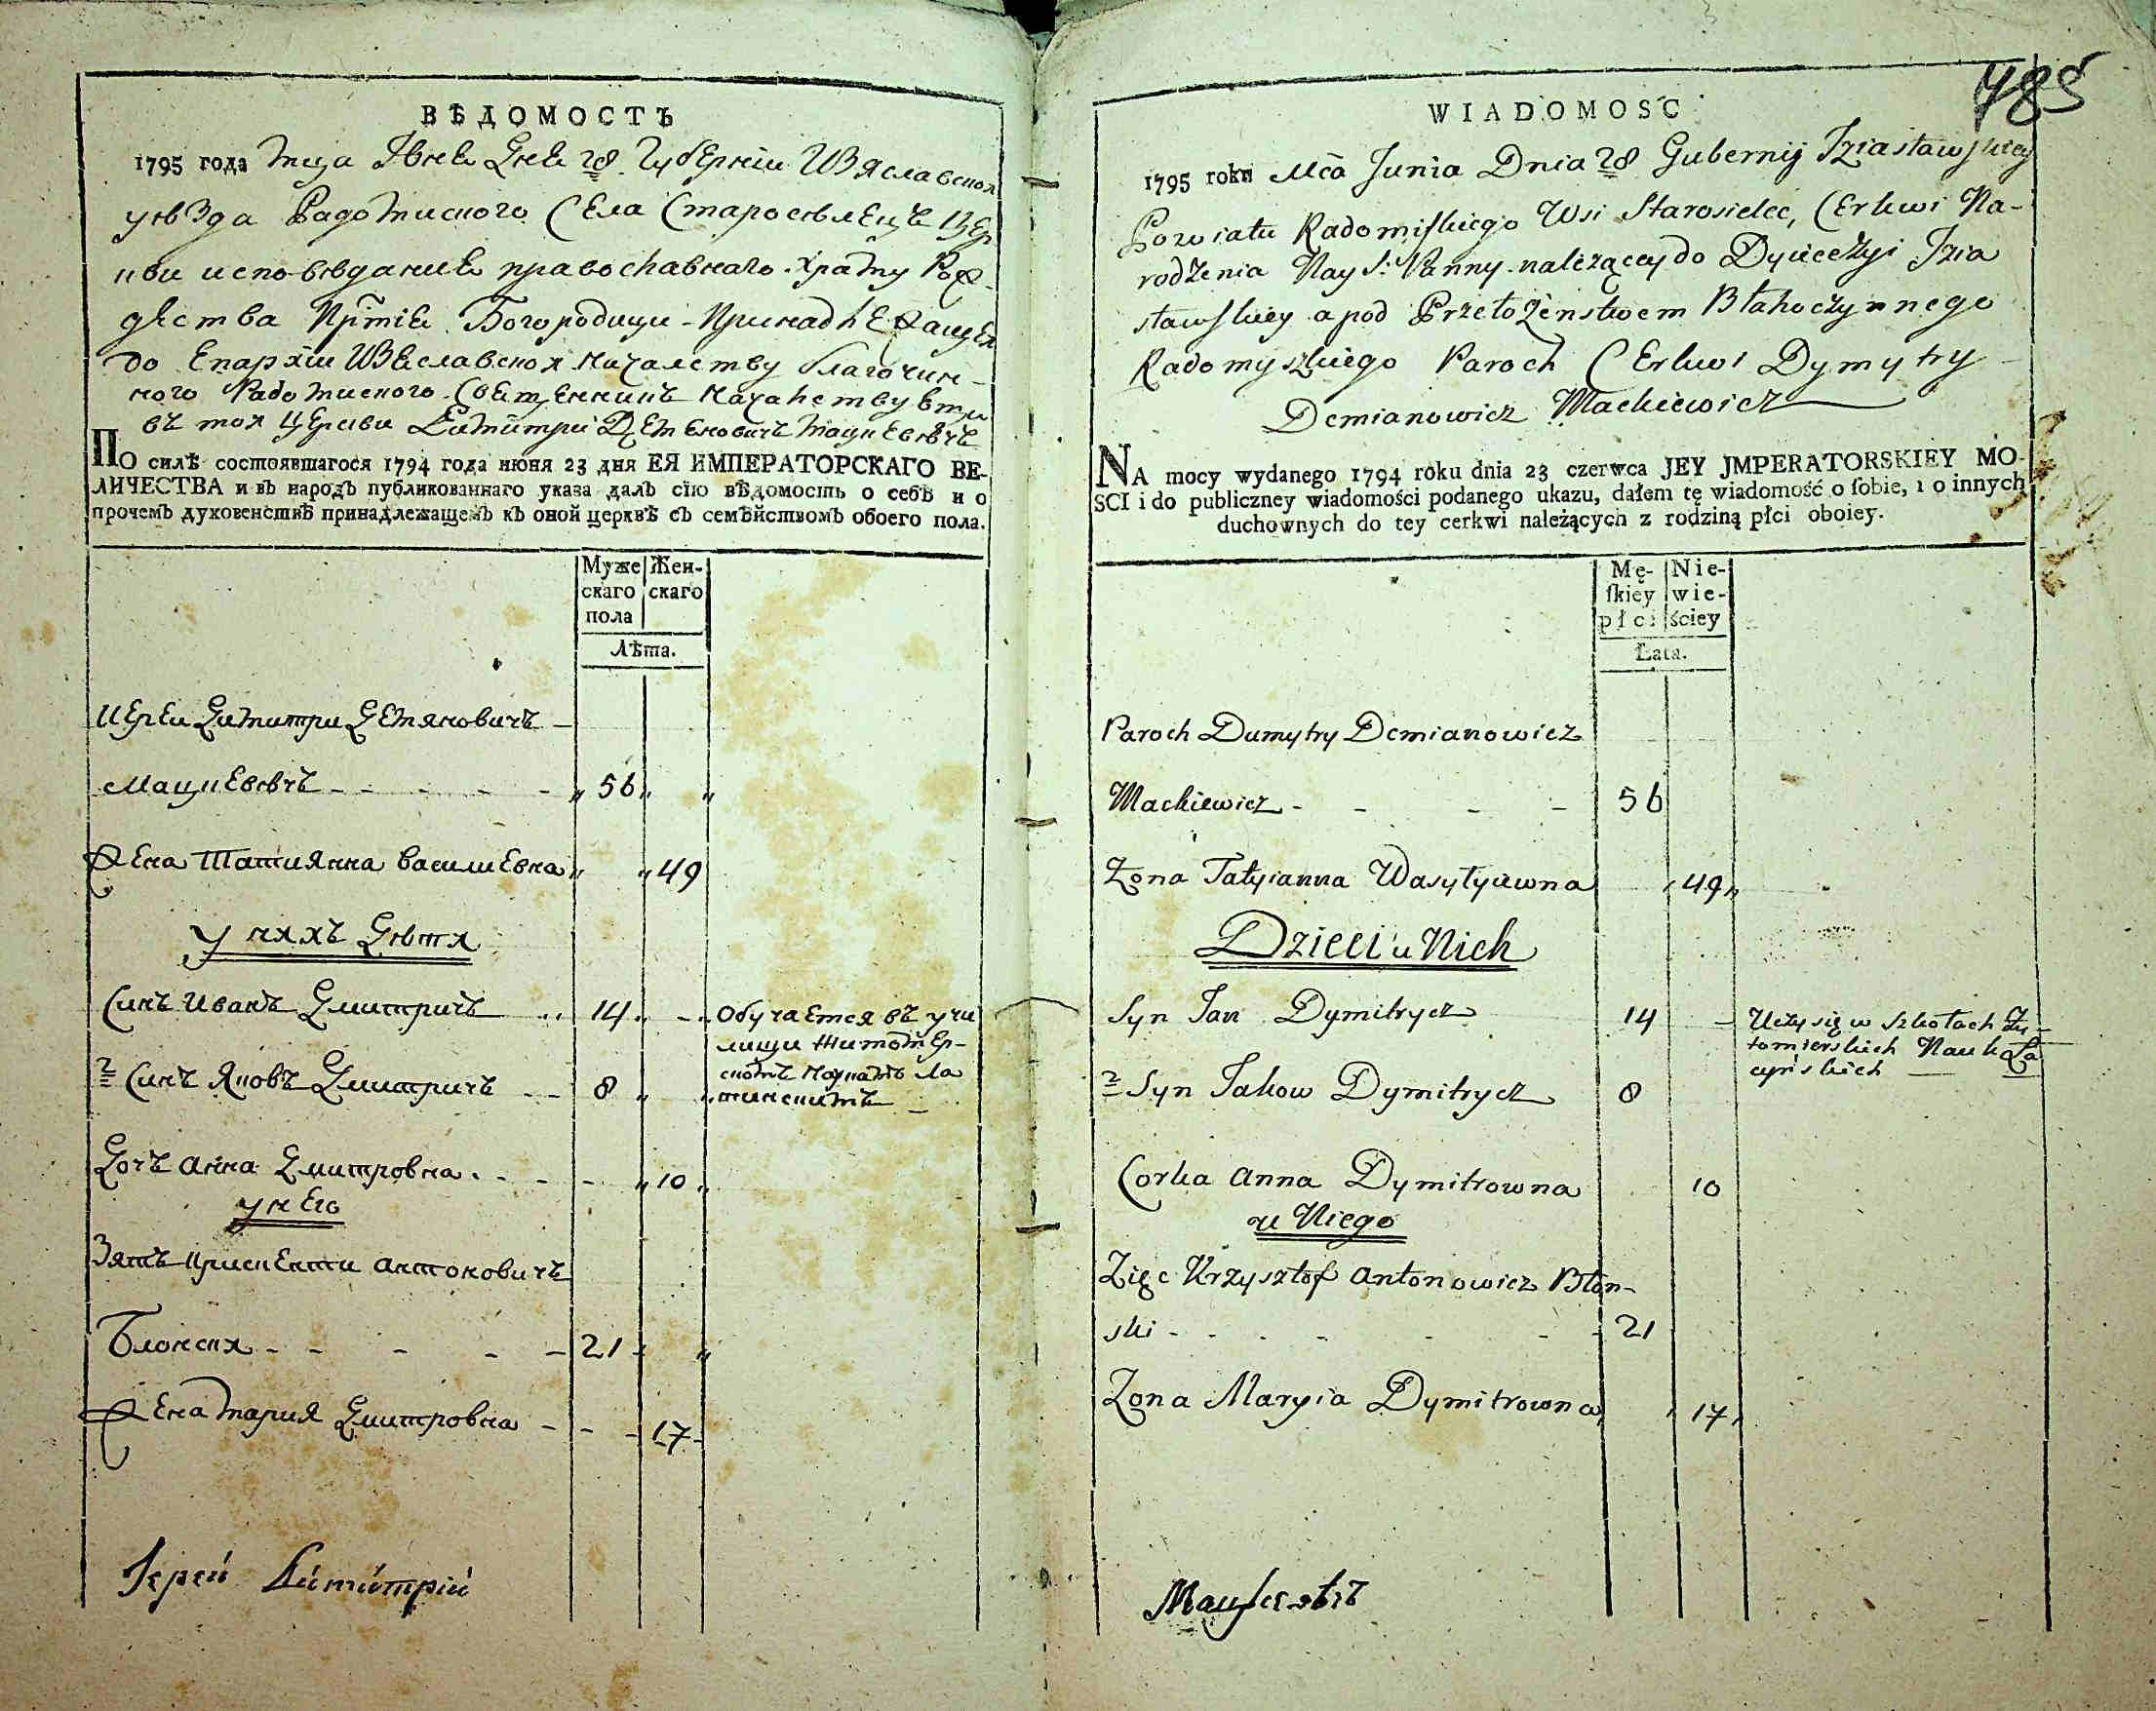 785
ВѢДОМОСТЬ
1795 года мца Июня Дня 28 Губернии Изяславской
уезда Радомиского Села Староселецъ Цер
кви исповедания православнаго храму Рож
дества Пртыя Богородици принадлежащей
до Епархии Изяславской началству благочин-
ного Радомиского
въ той церкви Димитри Демяновичъ Мацкевичъ
ПО силѣ состоявшагося 1794 года июня 23 дня ЕЯ ИМПЕРАТОРСКАГО ВЕ-
ЛИЧЕСТВА и въ народъ публикованнаго указа далъ сїю вѣдомость о себѣ и о
прочемъ духовенствѣ принадлежащемъ къ оной церквѣ съ семѣйствомъ обоего пола.
Муже|Жен-
скаго|скаго
пола
Лѣта.
Иерей Димитри Демяновичъ
Мацкевичъ 56
Жена Татиянна Василиевна 49
У нихъ Дѣти
Синъ Иванъ Дмитричъ 14 Обучается въ учи
лищи Житомер-
скомъ наукамъ ла
тинскимъ
2 Синъ Яковъ Дмитричъ 8
Дочъ Анна Дмитровна 10
у него
Зять Криспенти Антоновичъ
Блонски 21
Жена Мария Дмитровна 17
Іерей Димитрій
WIADOMOSC
1795 roku Mca Junia Dnia 28 Gubernij Jziasławskiey
Powiatu Radomiskiego Wsi Starosielec, Cerkwi Na-
rodzenia Nay S: Panny należącey do Dyiecezyi Jzia
sławskiey a pod Przełożenstwem Błahoczynnego
Radomyszkiego Paroch Cerkwi Dymytry
Demianowicz Mackiewicz
NA mocy wydanego 1794 roku dnia 23 czerwca JEY JMPERATORSKIEY MO-
SCI i do publiczney wiadomości podanego ukazu, dałem tę wiadomość o sobie, i o innych
duchownych do tey cerkwi należących z rodziną płci oboiey.
Mę-|Nie-
skiey|wie-
płci|ściey
Lata.
Paroch Dumytry Demianowicz
Mackiewicz 56
Zona Tatyianna Wasylyiewna 49
Dzieci u Nich
Syn Jan Dymitrycz 14 Uczy się w Szkołach Ży-
tomierskich Nauk Ła
cyńskich
2 Syn Jakow Dymitrycz 8
Corka Anna Dymitrowna 10
u Niego
Zięc Krzysztof Antonowicz Błon-
ski 21
Zona Maryia Dymitrowna 17
Мацкевичъ